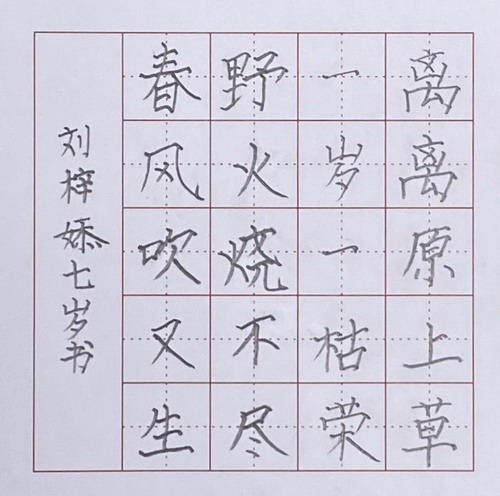 离离原上草
一岁一枯荣
野火烧不尽
春风吹又生
刘梓婖七岁书